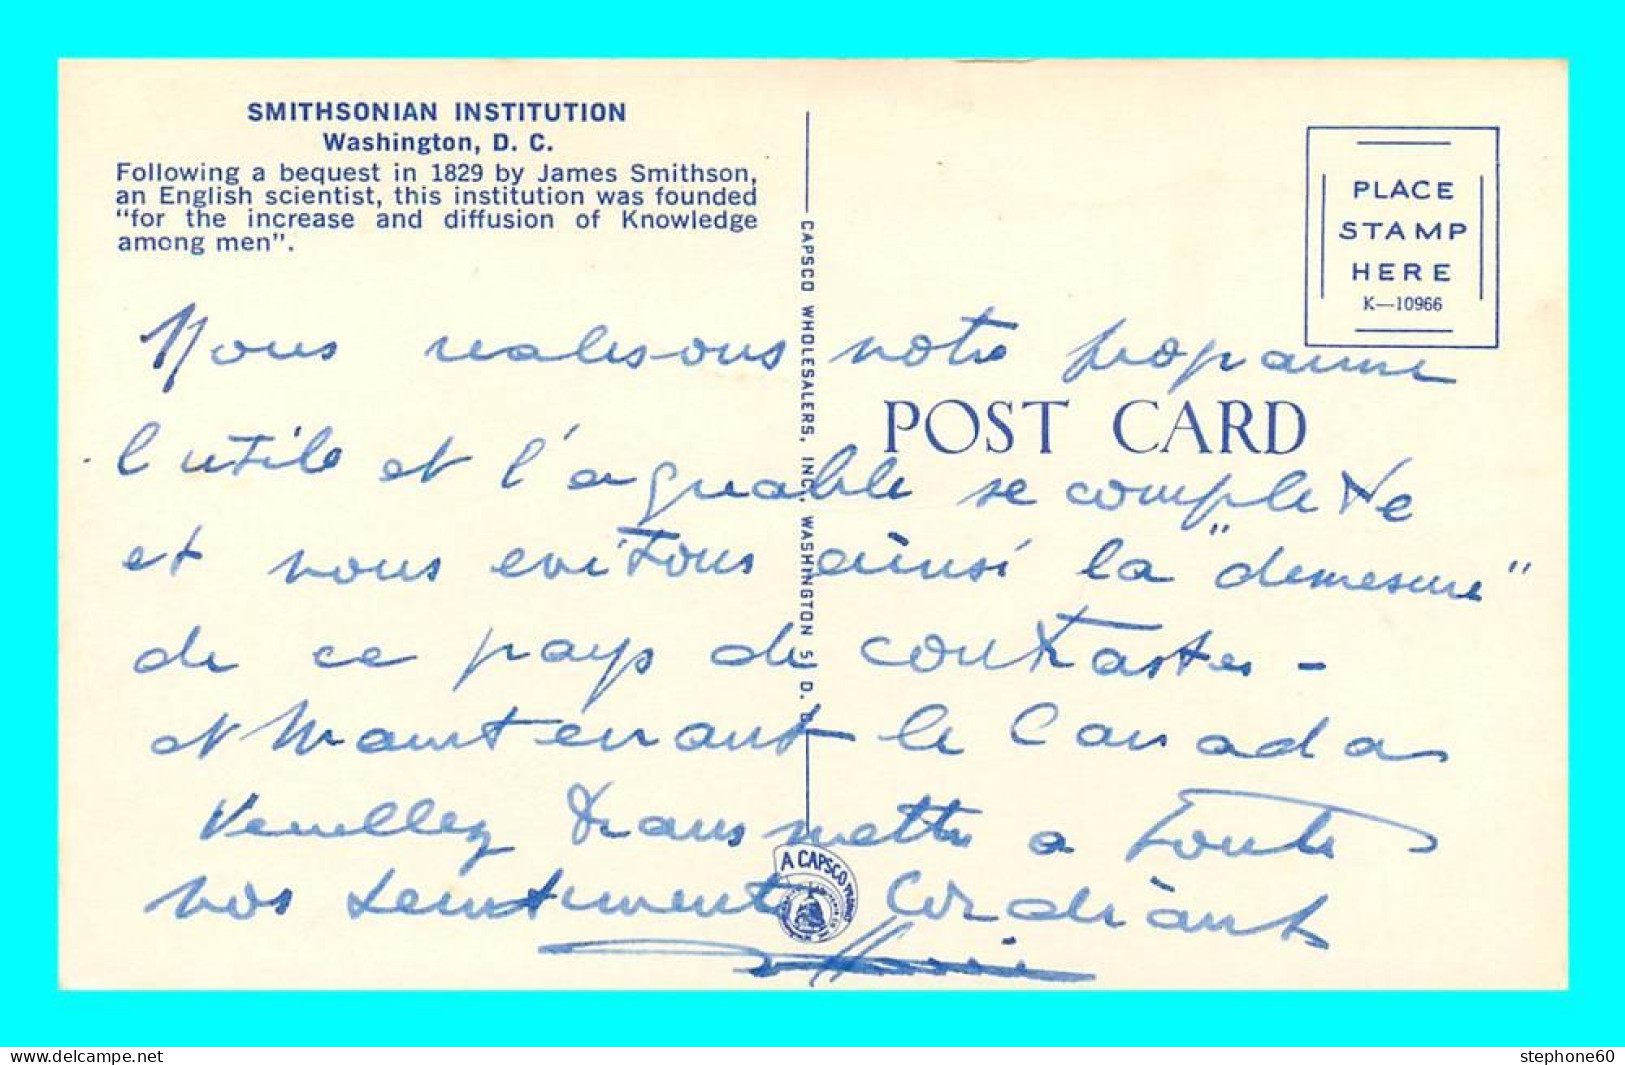 SMITHSONIAN INSTITUTION
Washington, D. C.
Following a bequest in 1829 by James Smithson,
an English scientist, this institution was founded
"for the increase and diffusion of Knowledge
among men".
CAPSCO WHOLESALERS, INC., WASHINGTON 5, D. C.
PLACE
STAMP
HERE
K—10966
POST CARD
Nous realisons notre programme
l'utile et l'agreable se complete
et nous evitons ainsi la "demesure"
de ce pays de contrastes -
et maintenant le Canada
Veuillez transmettre a toute
nos sentiments Cordiants
A CAPSCO PRODUCT
www.delcampe.net
stephone60